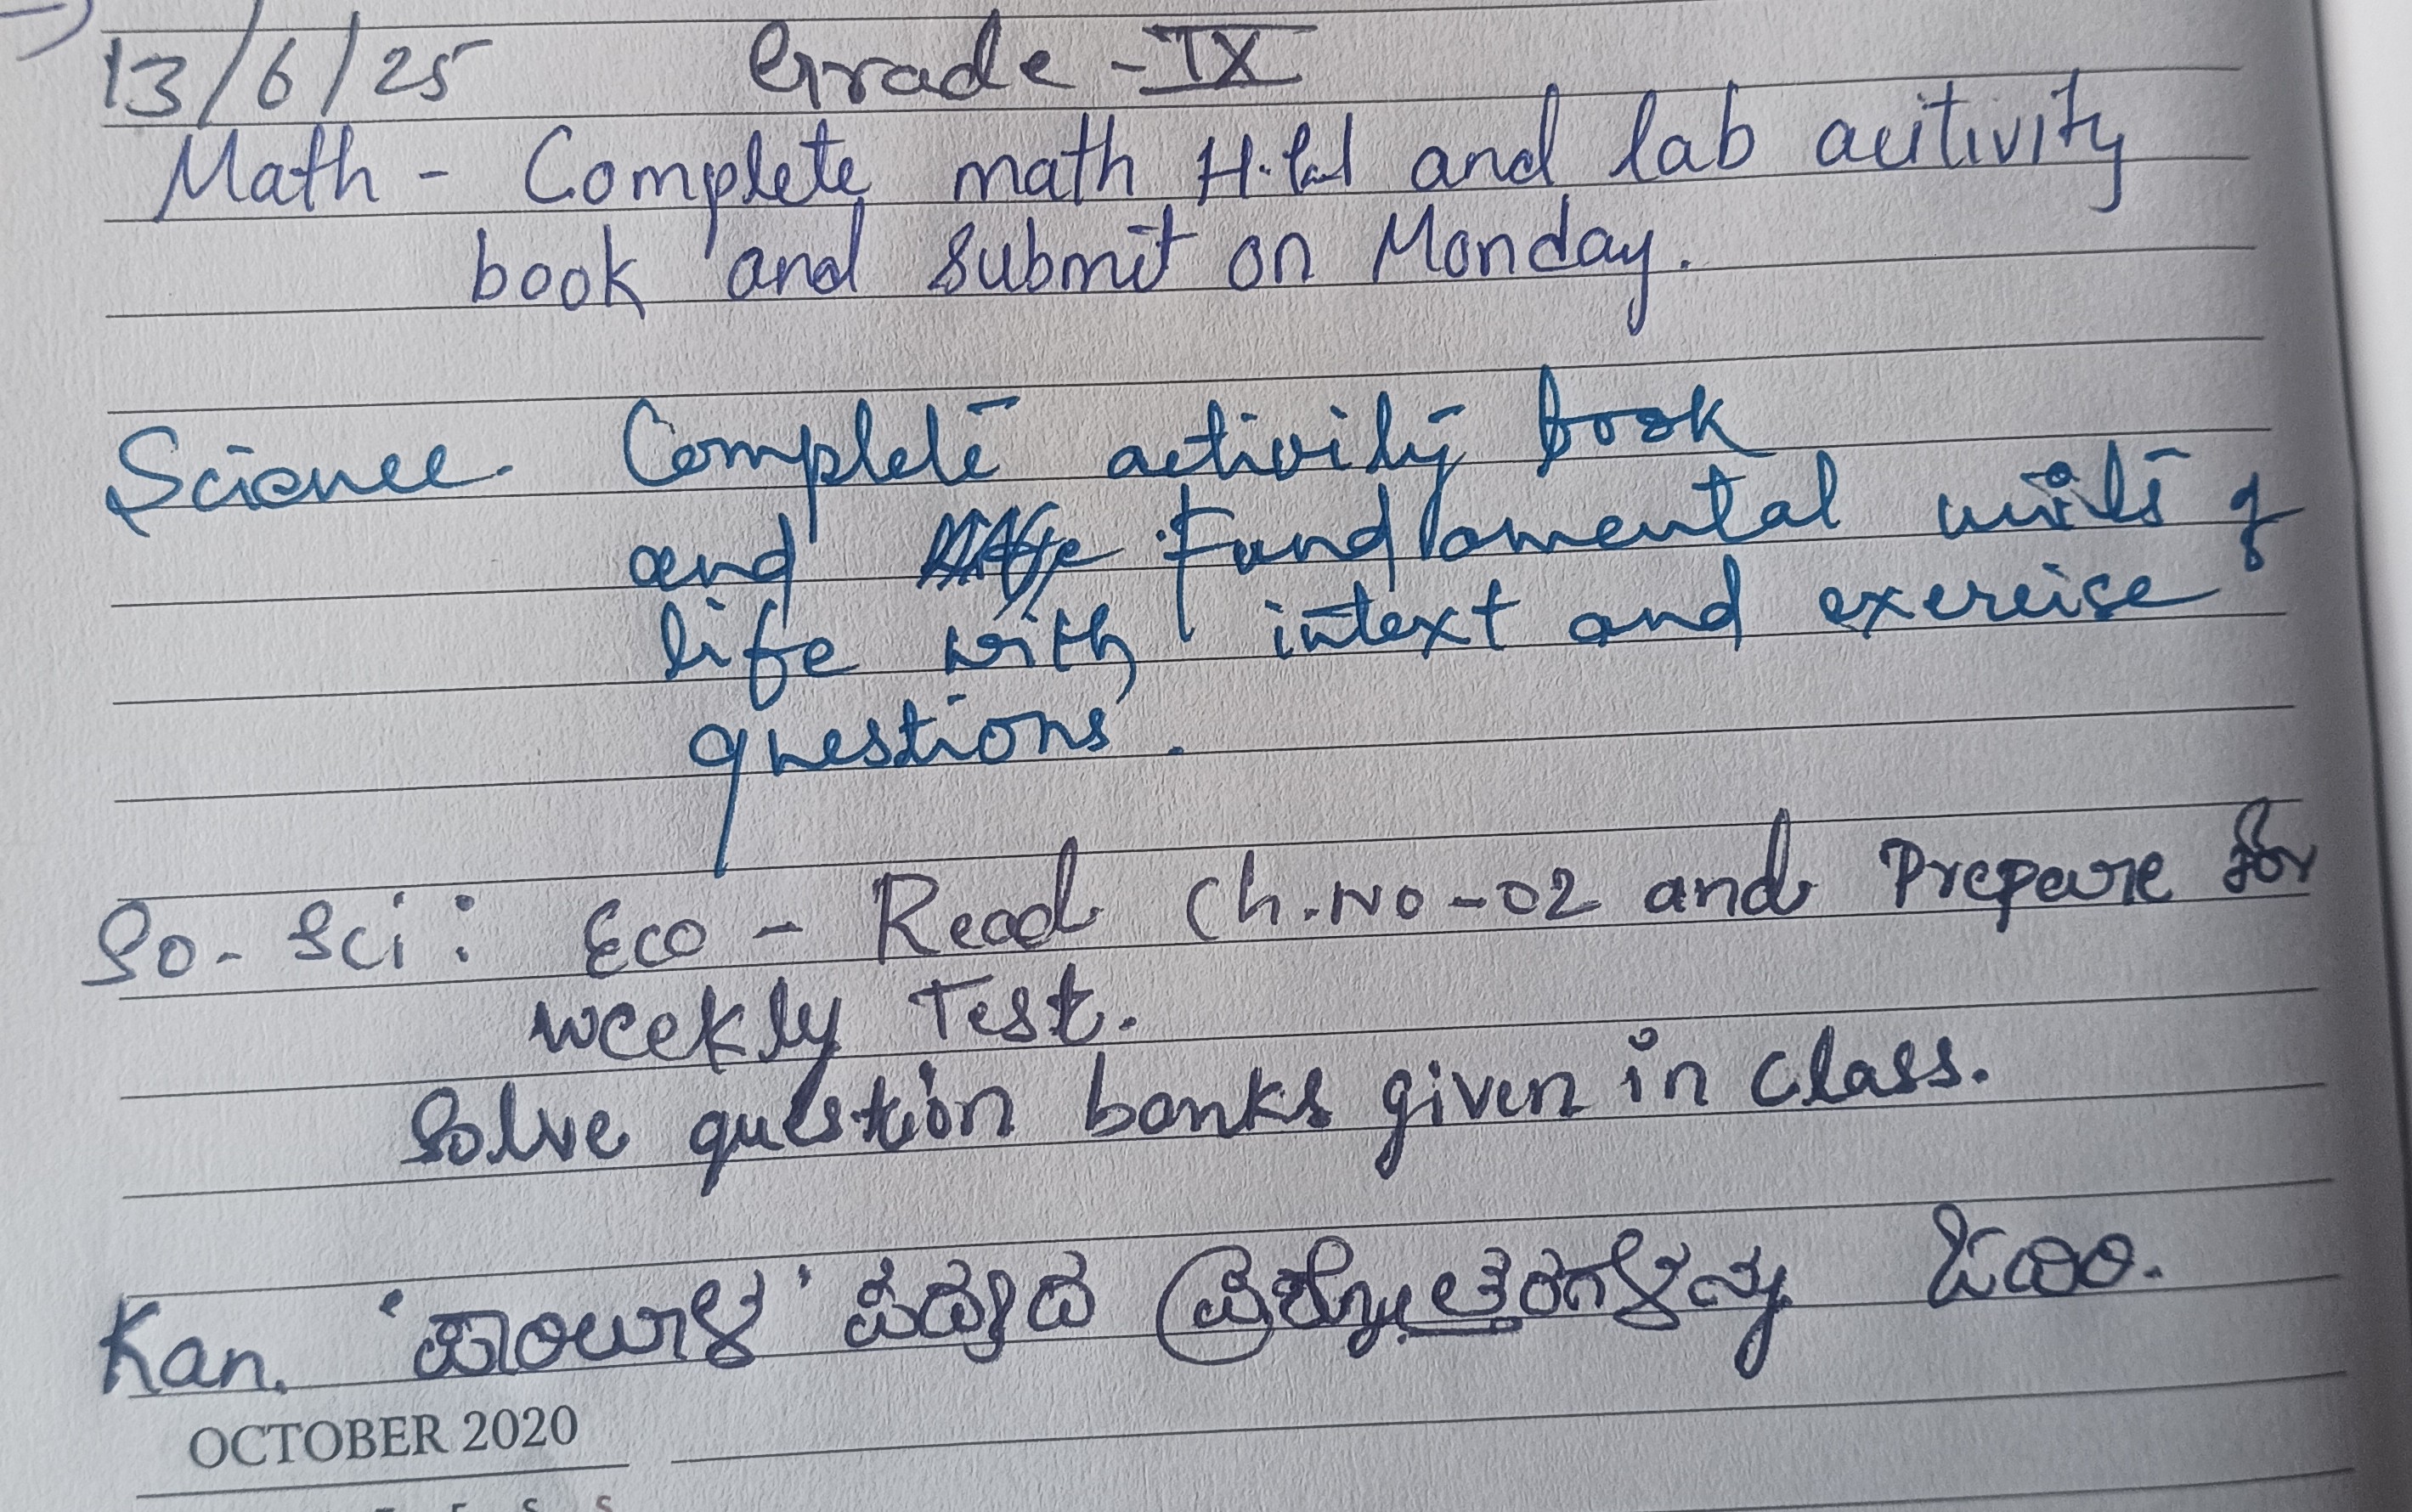 13/6/25 Grade - IX
Math - Complete math H.W and lab acitivity
book and submit on Monday.
Science - Complete activity book
and Fundamental units of
life with intext and exercise
questions.
So. Sci : Eco - Read Ch.No-02 and Prepare for
weekly Test.
Solve question banks given in class.
Kan. ' ' ಪದ್ಯದ ಪ್ರಶ್ನೋತ್ತರಗಳನ್ನು ಓದಿರಿ.
OCTOBER 2020